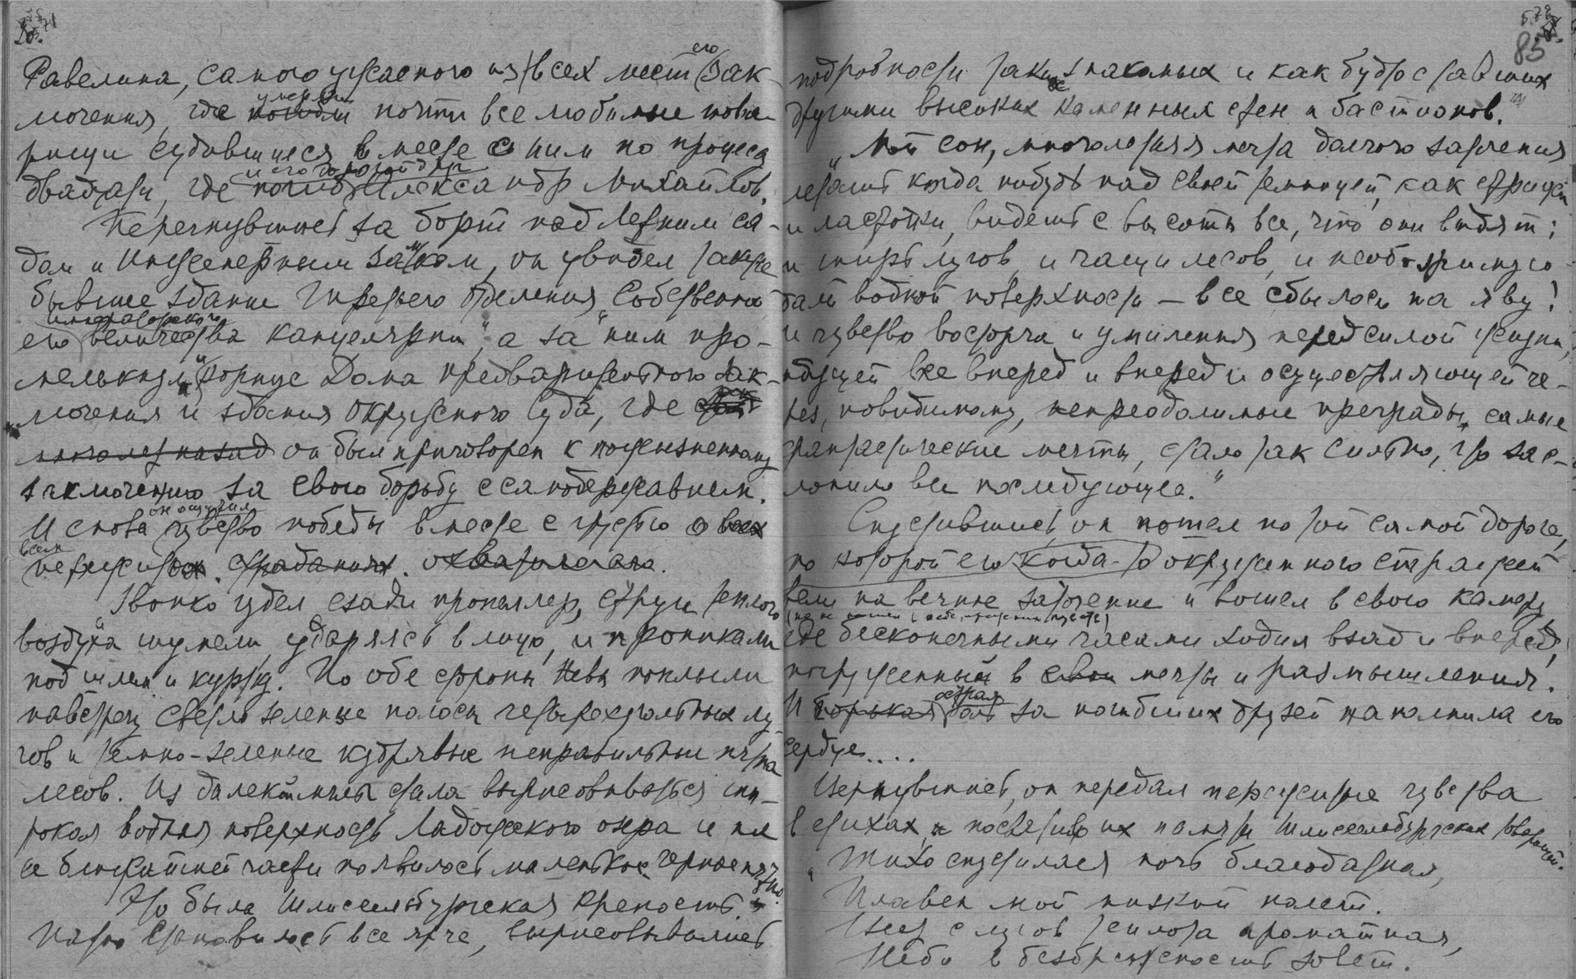 85
Равелина, самого ужасного из всех мест его зак-
лючения, где умерли почти все любимые това-
рищи судившиеся вместе с ним по процессу
двадцати, где погиб и его дорогой друг Александр Михайлов.
Перегнувшись за борт над Летним са-
дом и Инженерным замком, он увидел также
бывшее здание "Третьего отделения Собственной
его императорского величества канцелярии", а за ним про-
мелькнули корпус Дома предварительного зак-
лючения и здания Окружного Суда, где
много лет назад он был приговорен к пожизненному
заключению за свою борьбу с самодержавием.
И снова он ощутил чувство победы вместе с грустью о всех
всем пережитом. страданиях. охватила его.
Звонко гудел сзади пропеллер, струи теплого
воздуха шумели, ударяясь в лицо, и проникали
под шлем и куртку. По обе стороны Невы поплыли
навстречу светло зеленые полосы четырехугольных лу-
гов и темно-зеленые кудрявые неправильные пятна
лесов. Из далекой мглы стала вырисовываться ши-
рокая водная поверхность Ладожского озера и на
ее ближайшей части появилось маленькое черное пятно.
Это была Шлиссельбургская крепость.
Пятно становилось все ярче, вырисовывались
подробности таких знакомых и как будто ставших
другими высоких каменных стен и бастионов.
"Мой сон, многолетняя мечта долгого заточения
летать когда нибудь над своей темницей, как стрижи
и ласточки, видеть с высоты все, что они видят:
и ширь лугов, и чащи лесов, и необозримую
даль водной поверхности — все сбылось на яву!
и чувство восторга и умиления перед силой жизни,
идущей все вперед и вперед и осуществляющей че-
рез, повидимому, непреодолимые преграды, самые
фантастические мечты, стало так сильно, что зас-
лонило все последующее."
Спустившись, он пошел по той самой дороге,
по которой его когда-то окруженного стражей
вели на вечное заточение и вошел в свою камеру
где бесконечными часами ходил взад и вперед,
погруженный в свои мечты и размышления.
И горькая острая боль за погибших друзей наполнила его
сердце....
Вернувшись, он передал пережитые чувства
в стихах, и посвятив их памяти Шлиссельбургских товарищей.
"Тихо спустилася ночь благодатная,
Плавен мой низкий полет.
Веет с лугов теплота ароматная,
Небо в безбрежность зовет.